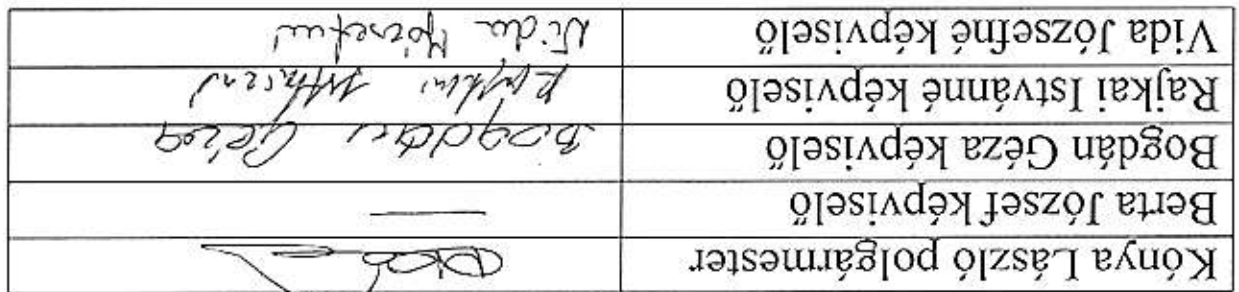 Kónya László polgármester
Berta József képviselő —
Bogdán Géza képviselő Bogdán Géza
Rajkai Istvánné képviselő Rajkai Istvánné
Vida Józsefné képviselő Vida Józsefné